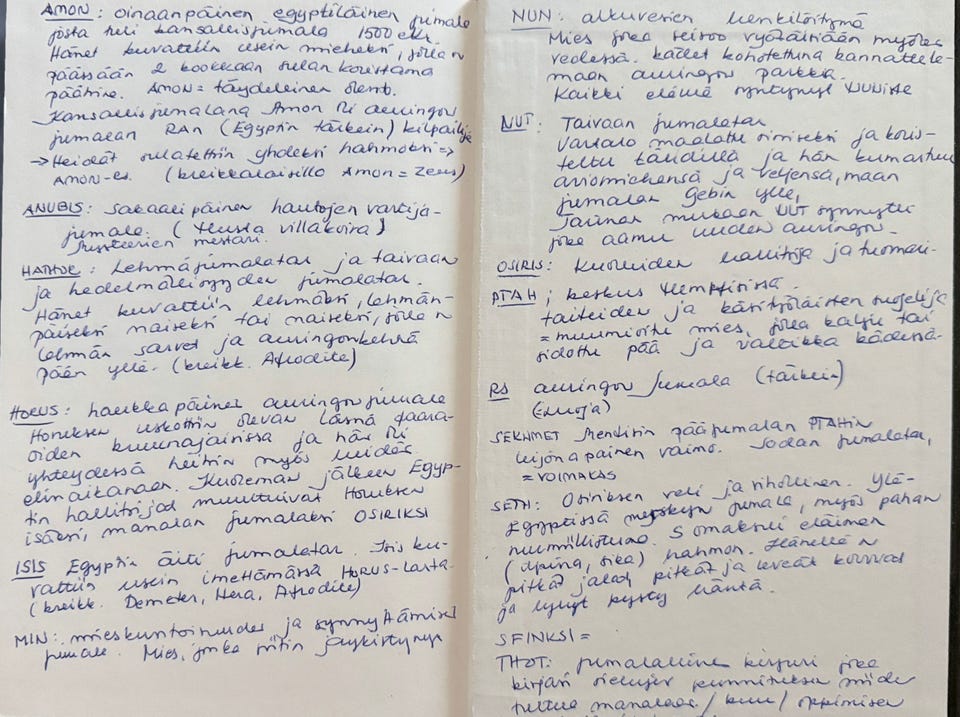 AMON: oinaanpäinen egyptiläinen jumala
josta tuli kansallisjumala 1500 eKr.
Hänet kuvattiin usein mieheksi, jolla n
päässään 2 kookkaan sulan koristama
päähine. AMON = täydellinen olento.
Kansallisjumalana Amon oli auringon
jumalan RAn (Egyptin tärkein) kilpailija
→ Heidät sulatettiin yhdeksi hahmoksi =>
AMON-RE. (kreikkalaisille Amon = Zeus)
ANUBIS: sakaalipäinen hautojen vartija-
jumala. (Musta villakoira)
Mysteerien mestari.
HATHOR: Lehmäjumalatar ja taivaan
ja hedelmällisyyden jumalatar.
Hänet kuvattiin lehmäksi, lehmän-
päiseksi naiseksi tai naiseksi, jolla n
lehmän sarvet ja auringonkehrä
pään yllä. (kreikk. Afrodite)
HORUS: haukkapäinen auringonjumala
Horuksen uskottiin olevan läsnä faara-
oiden kruunajaisissa ja hän oli
yhteydessä heihin myös heidän
elinaikanaan. Kuoleman jälkeen Egyp-
tin hallitsijat muuttuivat Horuksen
isäksi, manalan jumalaksi OSIRIKSI
ISIS Egyptin äiti jumalatar. Isis ku-
vattiin usein imettämässä HORUS-lasta.
(kreikk. Demeter, Hera, Afrodite)
MIN: mieskuntoisuuden ja synnyttämisen
jumala. Mies, jonka siitin jäykistynyt
NUN: alkuvesien henkilöitymä
Mies joka seisoo vyötäisiään myöten
vedessä. kädet kohotettuna kannattele-
maan auringon purtta.
Kaikki elämä syntynyt NUNista
NUT: Taivaan jumalatar
Vartalo maalattu siniseksi ja koris-
teltu tähdillä ja hän kumartuu
aviomiehensä ja veljensä, maan
jumalan Gebin ylle,
Tarinan mukaan NUT synnytti
joka aamu uuden auringon.
OSIRIS: Kuolleiden hallitsija ja tuomari.
PTAH; keskus Memfisissä.
taiteiden ja käsityöläisten suojelija
= muumioitu mies, jolla kalju tai
sidottu pää ja valtikka kädessä.
RE auringon jumala (tärkein)
(Luoja)
SEKHMET Memfisin pääjumalan PTAHin
leijonapäinen vaimo. Sodan jumalatar,
= VOIMAKAS
SETH: Osiriksen veli ja vihollinen. Ylä-
Egyptissä myrskyn jumala, myös pahan
ruumiillistuma. S omaksui eläimen
(apina, sika) hahmon. Hänellä n
pitkät jalat, pitkät ja leveät korvat
ja lyhyt pysty häntä.
SFINKSI =
THOT: jumalallinen kirjuri joka
kirjasi sielujen punnituksen niiden
tultua manalaan / kuu / oppimisen